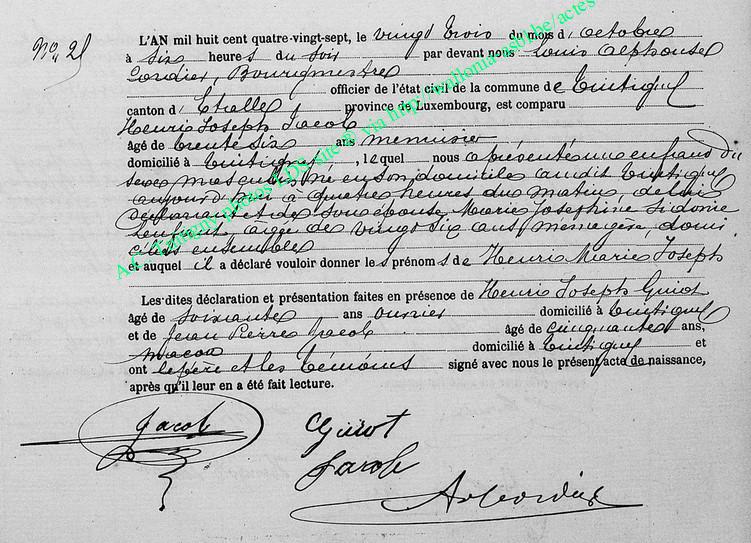 No. 25
L'AN mil huit cent quatre-vingt-sept, le vingt trois du mois d'octobre
à six heures du soir par devant nous Louis Alphonse
Cordier, Bourgmestre
officier de l'état civil de la commune de Tintigny
canton d'Etalle province de Luxembourg, est comparu
Henri Joseph Jacob
âgé de trente six ans menuisier
domicilié à Tintigny, lequel nous a présenté un enfant du
sexe masculin, né en son domicile audit Tintigny
aujourd'hui à quatre heures du matin, de lui
déclarant et de son épouse Marie Joséphine Sidonie
âgée de vingt six ans, ménagère, domi
ciliés ensemble
et auquel il a déclaré vouloir donner les prénoms de Henri Marie Joseph
Les dites déclaration et présentation faites en présence de Henri Joseph Guiot
âgé de soixante ans ouvrier domicilié à Tintigny
et de Jean Pierre Jacob âgé de cinquante ans,
maçon domicilié à Tintigny et
ont le père et les témoins signé avec nous le présent acte de naissance,
après qu'il leur en a été fait lecture.
Jacob Guiot
Jacob
A. Cordier
photos LDS site © via http://wallonia-asbl.be/actes